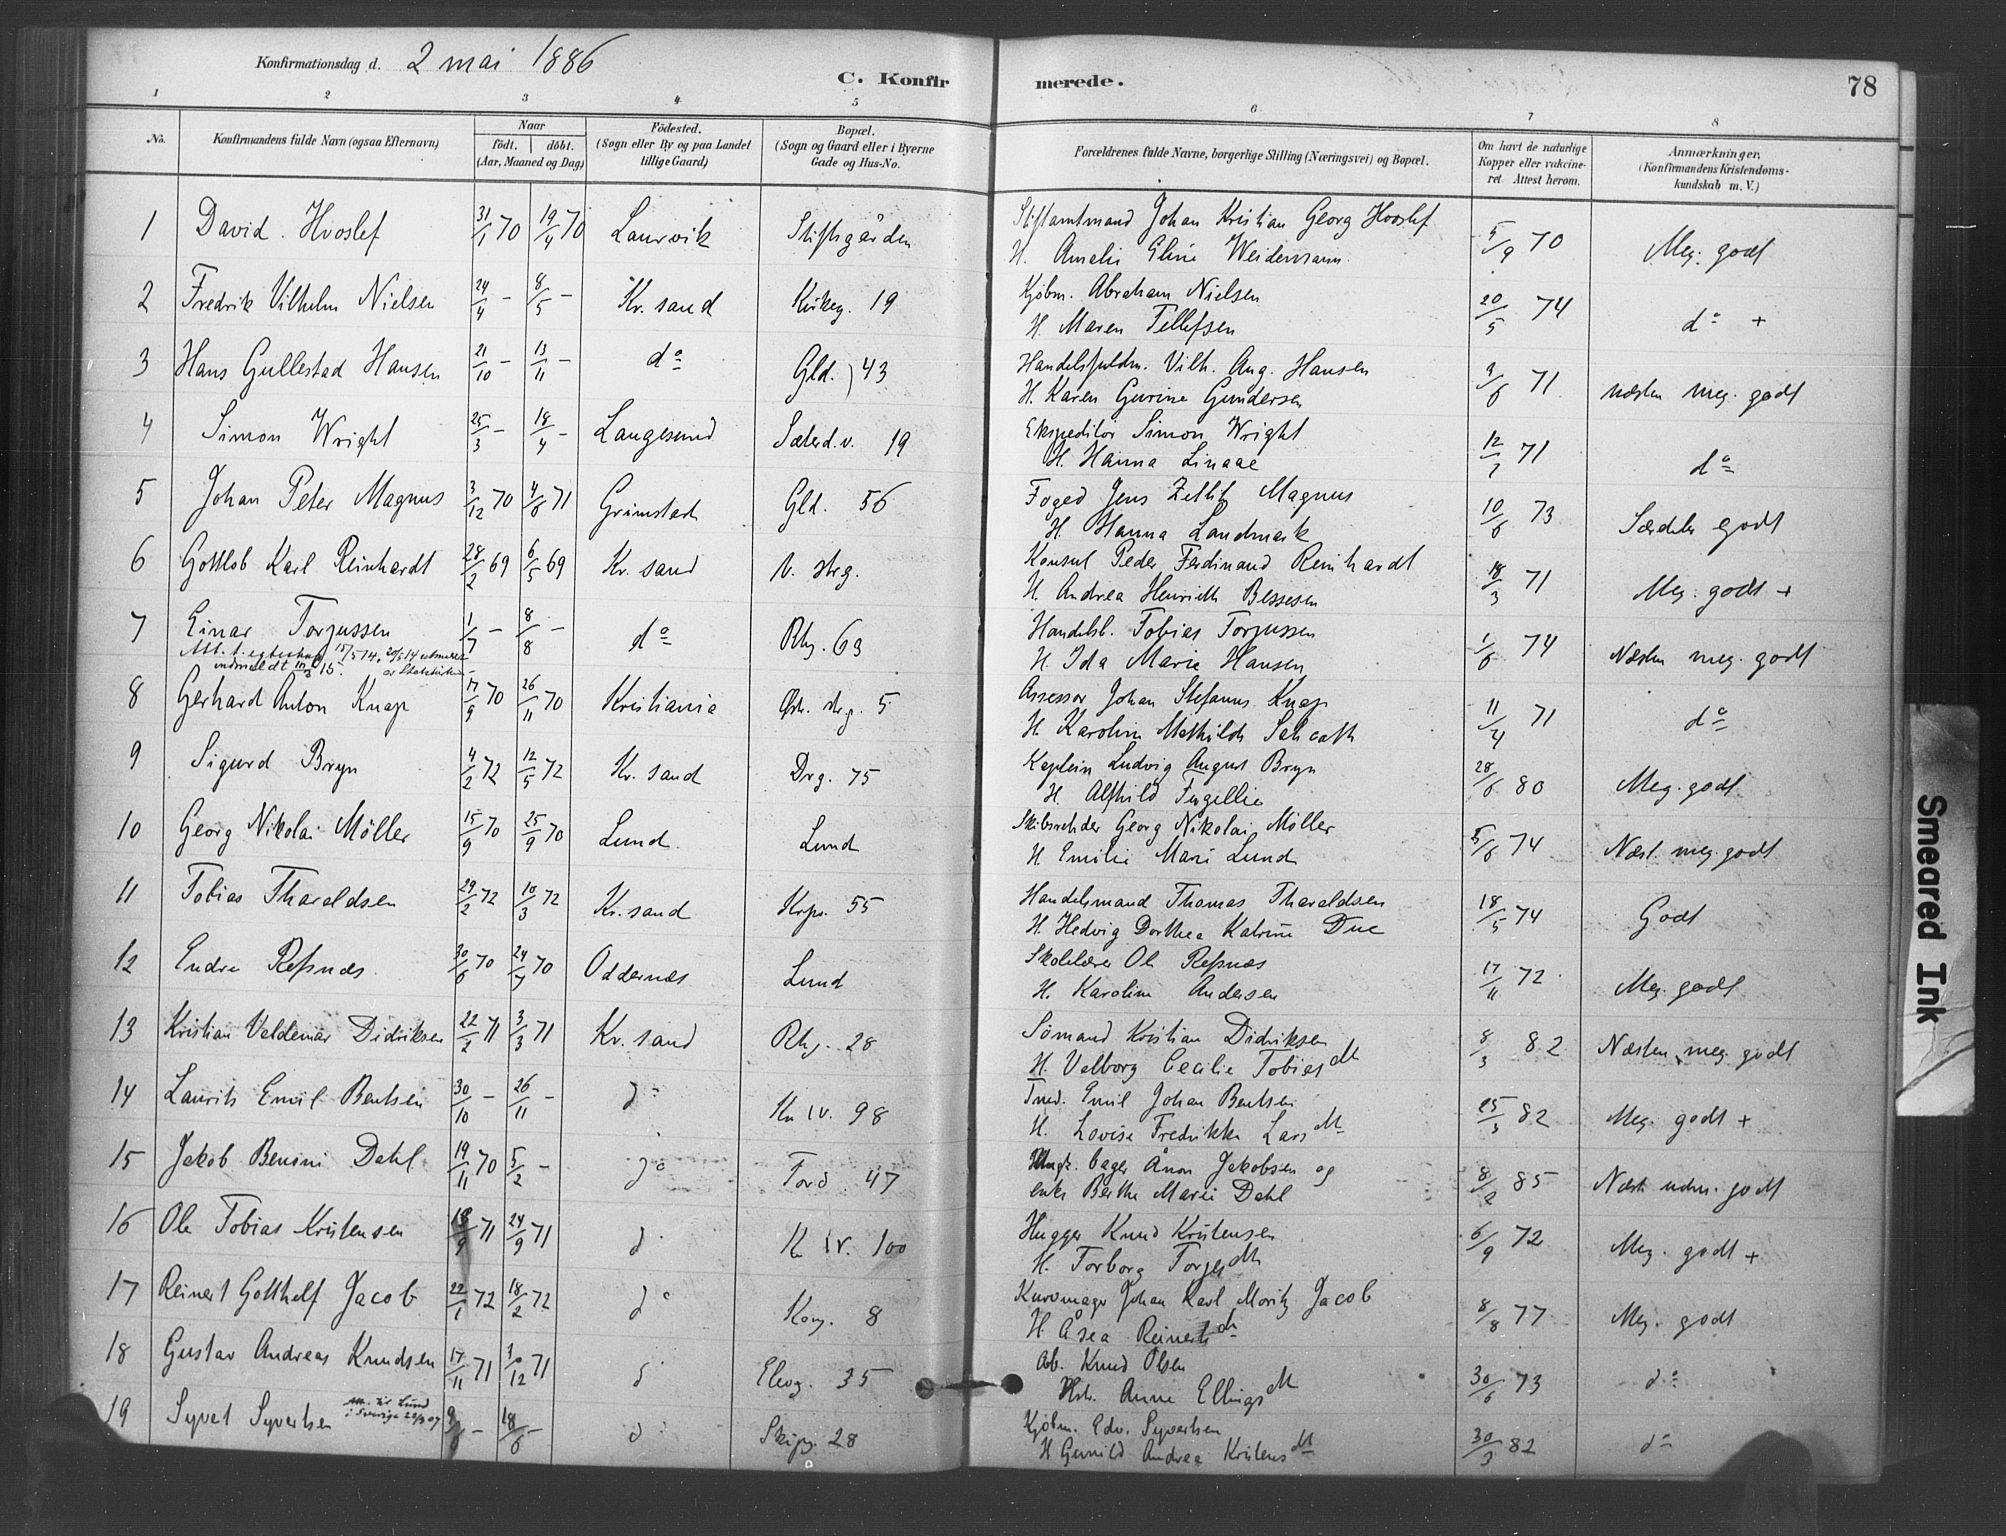 Konfirmationsdag d. 2 mai 1886
C. Konfirmerede.
78
1 2 3 4 5 6 7 8
No.
Konfirmandens fulde Navn (ogsaa Efternavn)
Naar
födt. döbt.
(Aar, Maaned og Dag)
Födested.
(Sogn eller By og paa Landet
tillige Gaard)
Bopæl.
(Sogn og Gaard eller i Byerne
Gade og Hus-No.
Forældrenes fulde Navne, borgerlige Stilling (Næringsvei) og Bopæl.
Om havt de naturlige
Kopper eller vakcine-
ret Attest herom.
Anmærkninger.
(Konfirmandens Kristendoms-
kundskab m. V.)
1 David Hvoslef 31/1 70 19/4 70 Laurvik Stiftsgården Stiftamtmand Johan Kristian Georg Hvoslef 5/9 70 Meg. godt
H. Amalie Eline Weidemann
2 Fredrik Vilhelm Nielsen 24/4 – 8/5 – Kr. sand Kirkeg. 19 Kjøbm. Abraham Nielsen 20/5 74 do +
H. Maren Tellefsen
3 Hans Gullestad Hansen 21/10 – 13/11 – do Gld. 43 Vilh. Aug. Hansen 71 næsten meg. godt
H. Karen Gurine Gundersen
4 Simon Wright 25/3 – 18/4 – Langesund Sæterd.v. 19 Ekspeditör Simon Wright 71 do
H. Hanna Linaae
5 Johan Peter Magnus 3/12 70 4/6 71 Grimstad Gld. 56 Foged Jens Zetlitz Magnus 10/6 73 Særdeles godt
H. Hanna Landmark
6 Gottlob Karl Reinhardt 28/2 69 6/5 69 Kr. sand V. strg. Konsul Peder Ferdinand Reinhardt 18/3 71 Meg. godt +
H. Andrea Henriette Bessesen
7 Einar Torjussen 1/7 – 8/8 – do Rhg. 63 Handelsb. Tobias Torjussen 1/6 74 Næsten meg. godt
H. Ida Marie Hansen
8 Gerhard Anton Knap 17/9 70 26/11 70 Kristiania Østr. strg. 5 Assessor Johan Stefanus Knap 11/4 71 do
H. Karoline Mathilde
9 Sigurd Bryn 4/2 72 12/5 72 Kr. sand Drg. 75 Kaptein Ludvig August Bryn 28/6 80 Meg. godt
H. Alfhild
10 Georg Nikolai Möller 15/9 70 25/9 70 Lund Lund Skibsreder Georg Nikolai Möller 5/6 74 Næst. meg. godt
H. Emilie Marie Lund
11 Tobias Tharaldsen 29/2 72 10/3 72 Kr. sand 55 Handelsmand Thomas Tharaldsen 18/5 74 Godt
H. Hedvig Dorthea Katrine Due
12 Endre Refsnæs 30/6 70 24/7 70 Oddernæs Lund Skolelærer Ole Refsnæs 17/11 72 Meg. godt
H. Karoline Andersen
13 Kristian Valdemar Didriksen 22/2 71 3/3 71 Kr. sand Rhg. 28 Sömand Kristian Didriksen 8/3 82 Næsten meg. godt
H. Valborg Cecilie Tobiasdtr
14 Laurits Emil Bentsen 30/10 – 26/11 – do 98 Emil Johan Bentsen 25/3 82 Meg. godt +
H. Lovise Fredrikke Larsdtr
15 Jakob Benoni Dahl 19/11 70 5/2 – do 47 Ånon Jakobsen og 85
enke Berthe Marie Dahl
16 Ole Tobias Kristensen 18/9 71 24/9 71 do 100 Hugger Knud Kristensen 6/9 72 Meg. godt +
H. Torborg Torjesdtr
17 Reinert Gotthelf Jacob 22/1 72 18/2 72 do Kong. 8 Kurvmager Johan Karl Moritz Jacob 8/8 77 Meg. godt
H. Åsea Reinertsdtr
18 Gustav Andreas Knudsen 17/11 71 /12 71 do Elveg. 35 Arb. Knud Olsen 30/6 73 do
Anne Ellingsdtr
19 Syvert Syvertsen 9/6 – 18/6 – do Skipg. 28 Kjøbm. Edv. Syvertsen 30/3 82 do
H. Andrea Kristensdtr
Smeared Ink